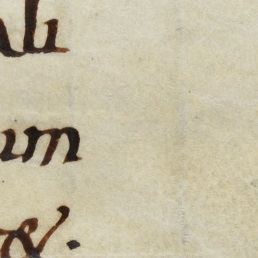 ali
um
&.